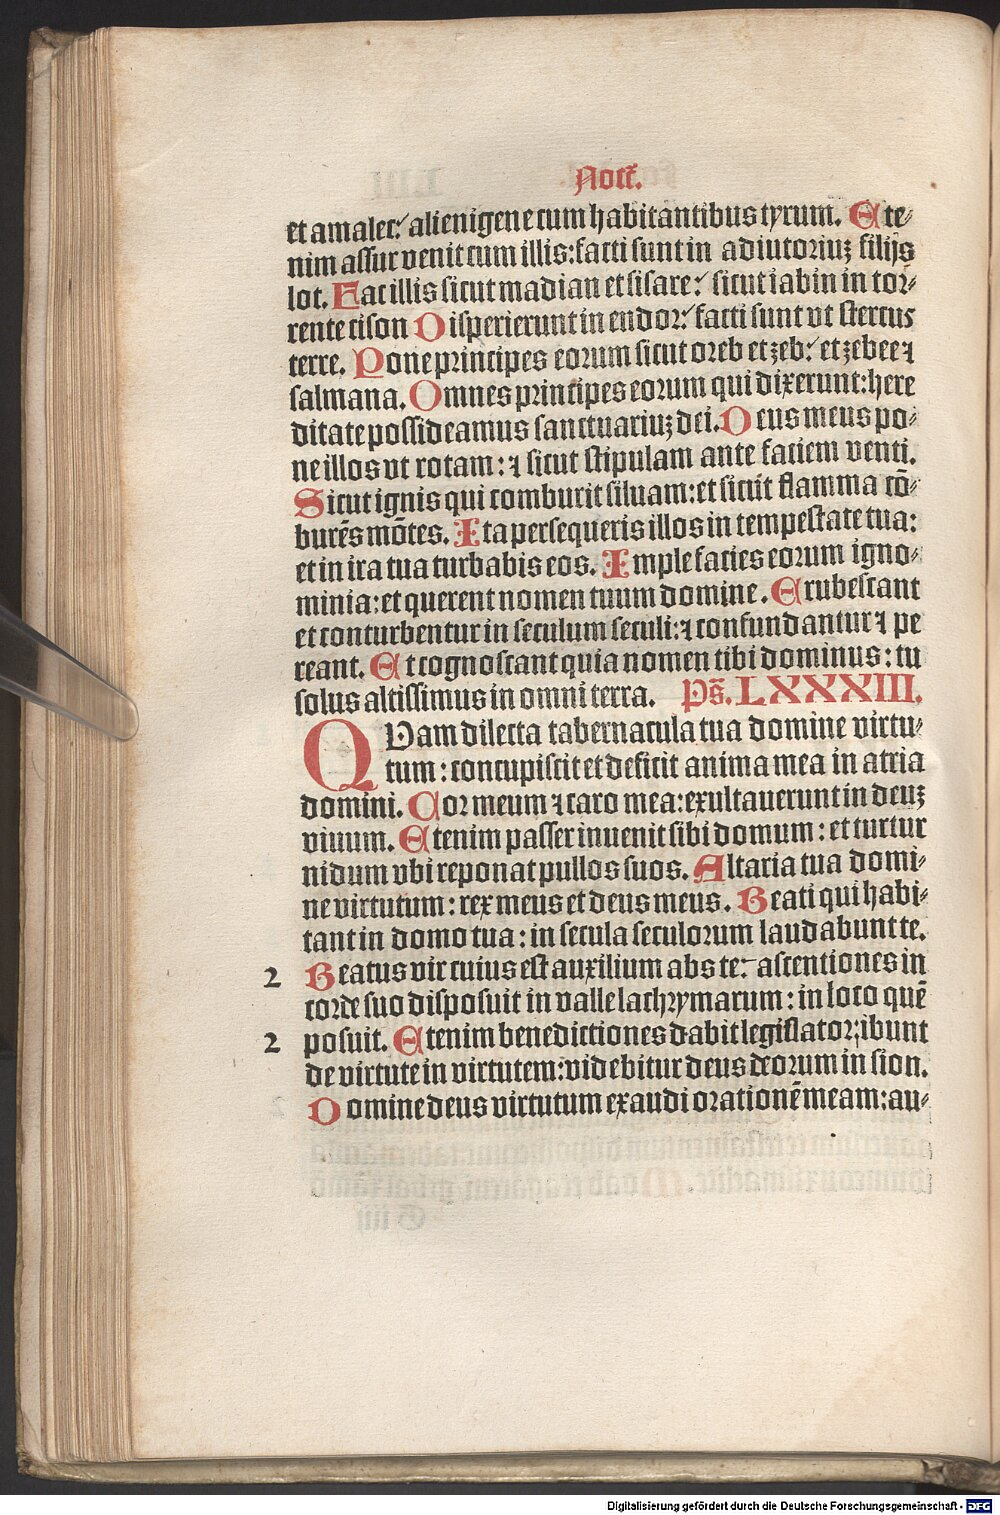 Noct̄.
et amalec: alienigene cum habitantibus tyrum. Ete⸗
nim assur venit cum illis: facti sunt in adiutoriuꝫ filijs
lot. Fac illis sicut madian et sisare: sicut iabin in tor⸗
rente cison Disperierunt in endor: facti sunt vt stercus
terre. Pone principes eorum sicut oreb et zeb: et zebee ⁊
salmana. Omnes principes eorum qui dixerunt: here
ditate possideamus sanctuariuꝫ dei. Deus meus po⸗
ne illos vt rotam: ⁊ sicut stipulam ante faciem venti.
Sicut ignis qui comburit siluam: et sicut flamma cō⸗
burēs mōtes. Ita persequeris illos in tempestate tua:
et in ira tua turbabis eos. Imple facies eorum igno⸗
minia: et querent nomen tuum domine. Erubescant
et conturbentur in seculum seculi: ⁊ confundantur ⁊ pe
reant. Et cognoscant quia nomen tibi dominus: tu
solus altissimus in omni terra. Ps̄. LXXXIII.
QVam dilecta tabernacula tua domine virtu⸗
tum: concupiscit et deficit anima mea in atria
domini. Cor meum ⁊ caro mea: exultauerunt in deuꝫ
viuum. Etenim passer inuenit sibi domum: et turtur
nidum vbi reponat pullos suos. Altaria tua domi⸗
ne virtutum: rex meus et deus meus. Beati qui habi⸗
tant in domo tua: in secula seculorum laudabunt te.
2 Beatus vir cuius est auxilium abs te: ascentiones in
corde suo disposuit in valle lachrymarum: in loco quē
2 posuit. Etenim benedictiones dabit legislator, ibunt
de virtute in virtutem: videbitur deus deorum in sion.
Domine deus virtutum exaudi orationē meam: au⸗
Digitalisierung gefördert durch die Deutsche Forschungsgemeinschaft - DFG